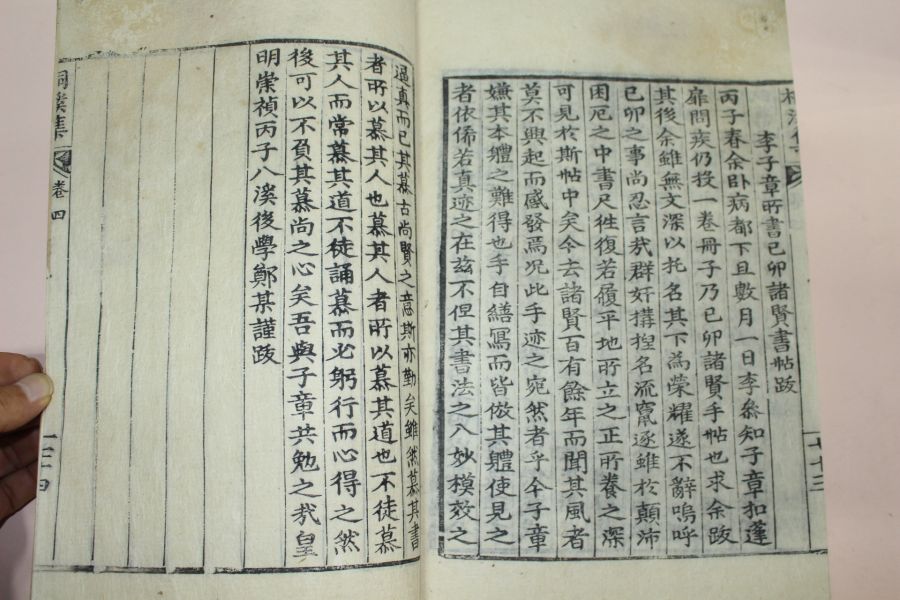 李子章所書己卯諸賢書帖跋
丙子春余卧病都下且數月一日李叅知子章扣蓬
扉問疾仍投一卷冊子乃己卯諸賢手帖也求余跋
其後余雖無文深以托名其下為榮耀遂不辭嗚呼
己卯之事尚忍言㢤群奸搆揑名流竄逐雖於顛沛
困厄之中書尺徃復若履平地所立之正所養之深
可見於斯帖中矣今去諸賢百有餘年而聞其風者
莫不興起而感發焉况此手迹之宛然者乎今子章
嫌其本軆之難得也手自繕寫而皆倣其軆使見之
者依俙若真迹之在玆不但其書法之入妙模效之
逼真而已其慕古尚賢之意斯亦勤矣雖然慕其書
者所以慕其人也慕其人者所以慕其道也不徒慕
其人而常慕其道不徒誦慕而必躬行而心得之然
後可以不負其慕尚之心矣吾與子章共勉之㢤皇
明崇禎丙子八溪後學鄭某謹跋
集
卷四
七十三
七十四